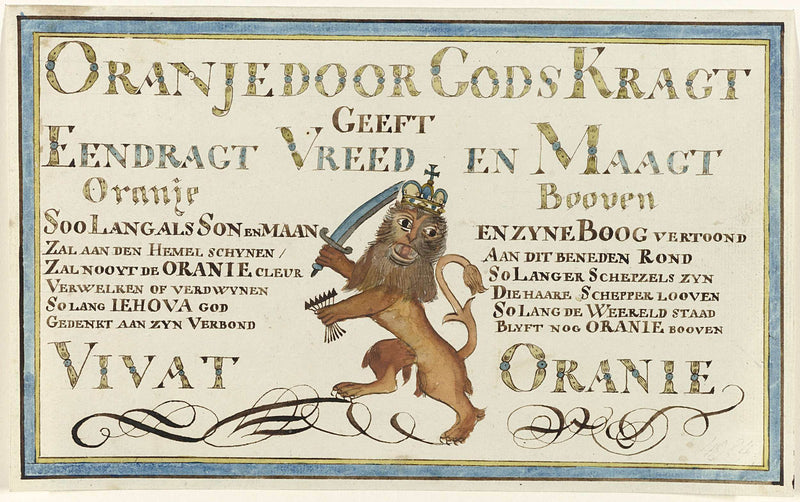 ORANJE DOOR GODS KRAGT
GEEFT
EENDRAGT VREED EN MAAGT
Oranje
SOO LANG ALS SON EN MAAN
ZAL AAN DEN HEMEL SCHYNEN /
ZAL NOOYT DE ORANIE CLEUR
VERWELKEN OF VERDWYNEN
SO LANG IEHOVA GOD
GEDENKT AAN ZYN VERBOND
Booven
EN ZYNE BOOG VERTOOND
AAN DIT BENEDEN ROND
SO LANG ER SCHEPZELS ZYN
DIE HAARE SCHEPPER LOOVEN
SO LANG DE WEERELD STAAD
BLYFT NOG ORANIE BOOVEN
VIVAT ORANIE